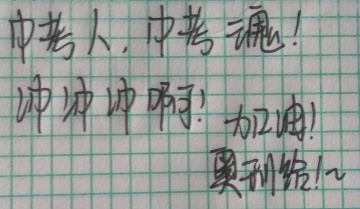 中考人，中考魂！
冲冲冲啊！
加油！
奥利给！~